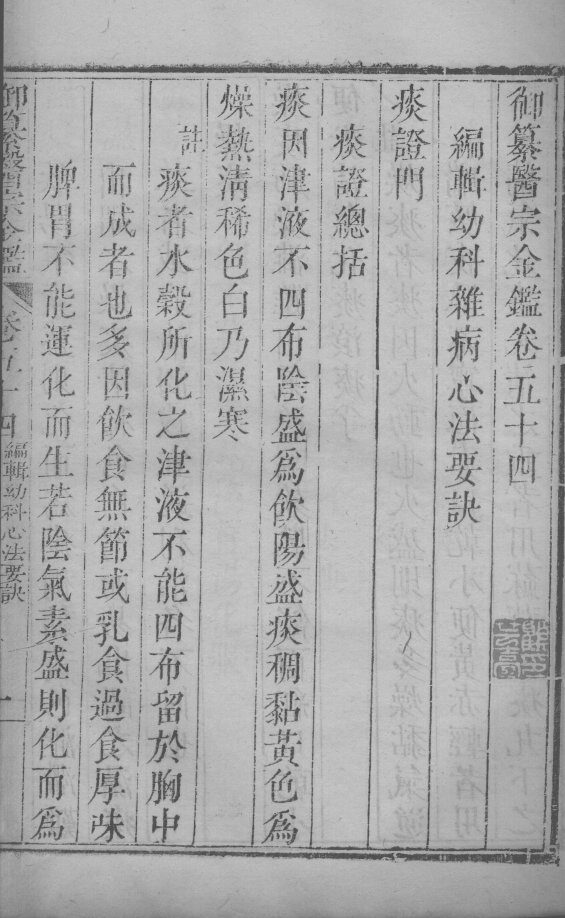 御纂醫宗金鑑卷五十四
編輯幼科雜病心法要訣
痰證門
痰證總括
痰因津液不四布陰盛爲飲陽盛痰稠黏黃色爲
燥熱清稀色白乃濕寒
註
痰者水穀所化之津液不能四布留於胸中
而成者也多因飲食無節或乳食過食厚味
脾胃不能運化而生若陰氣素盛則化而爲
御纂醫宗金鑑
卷五十四
編輯幼科心法要訣
一